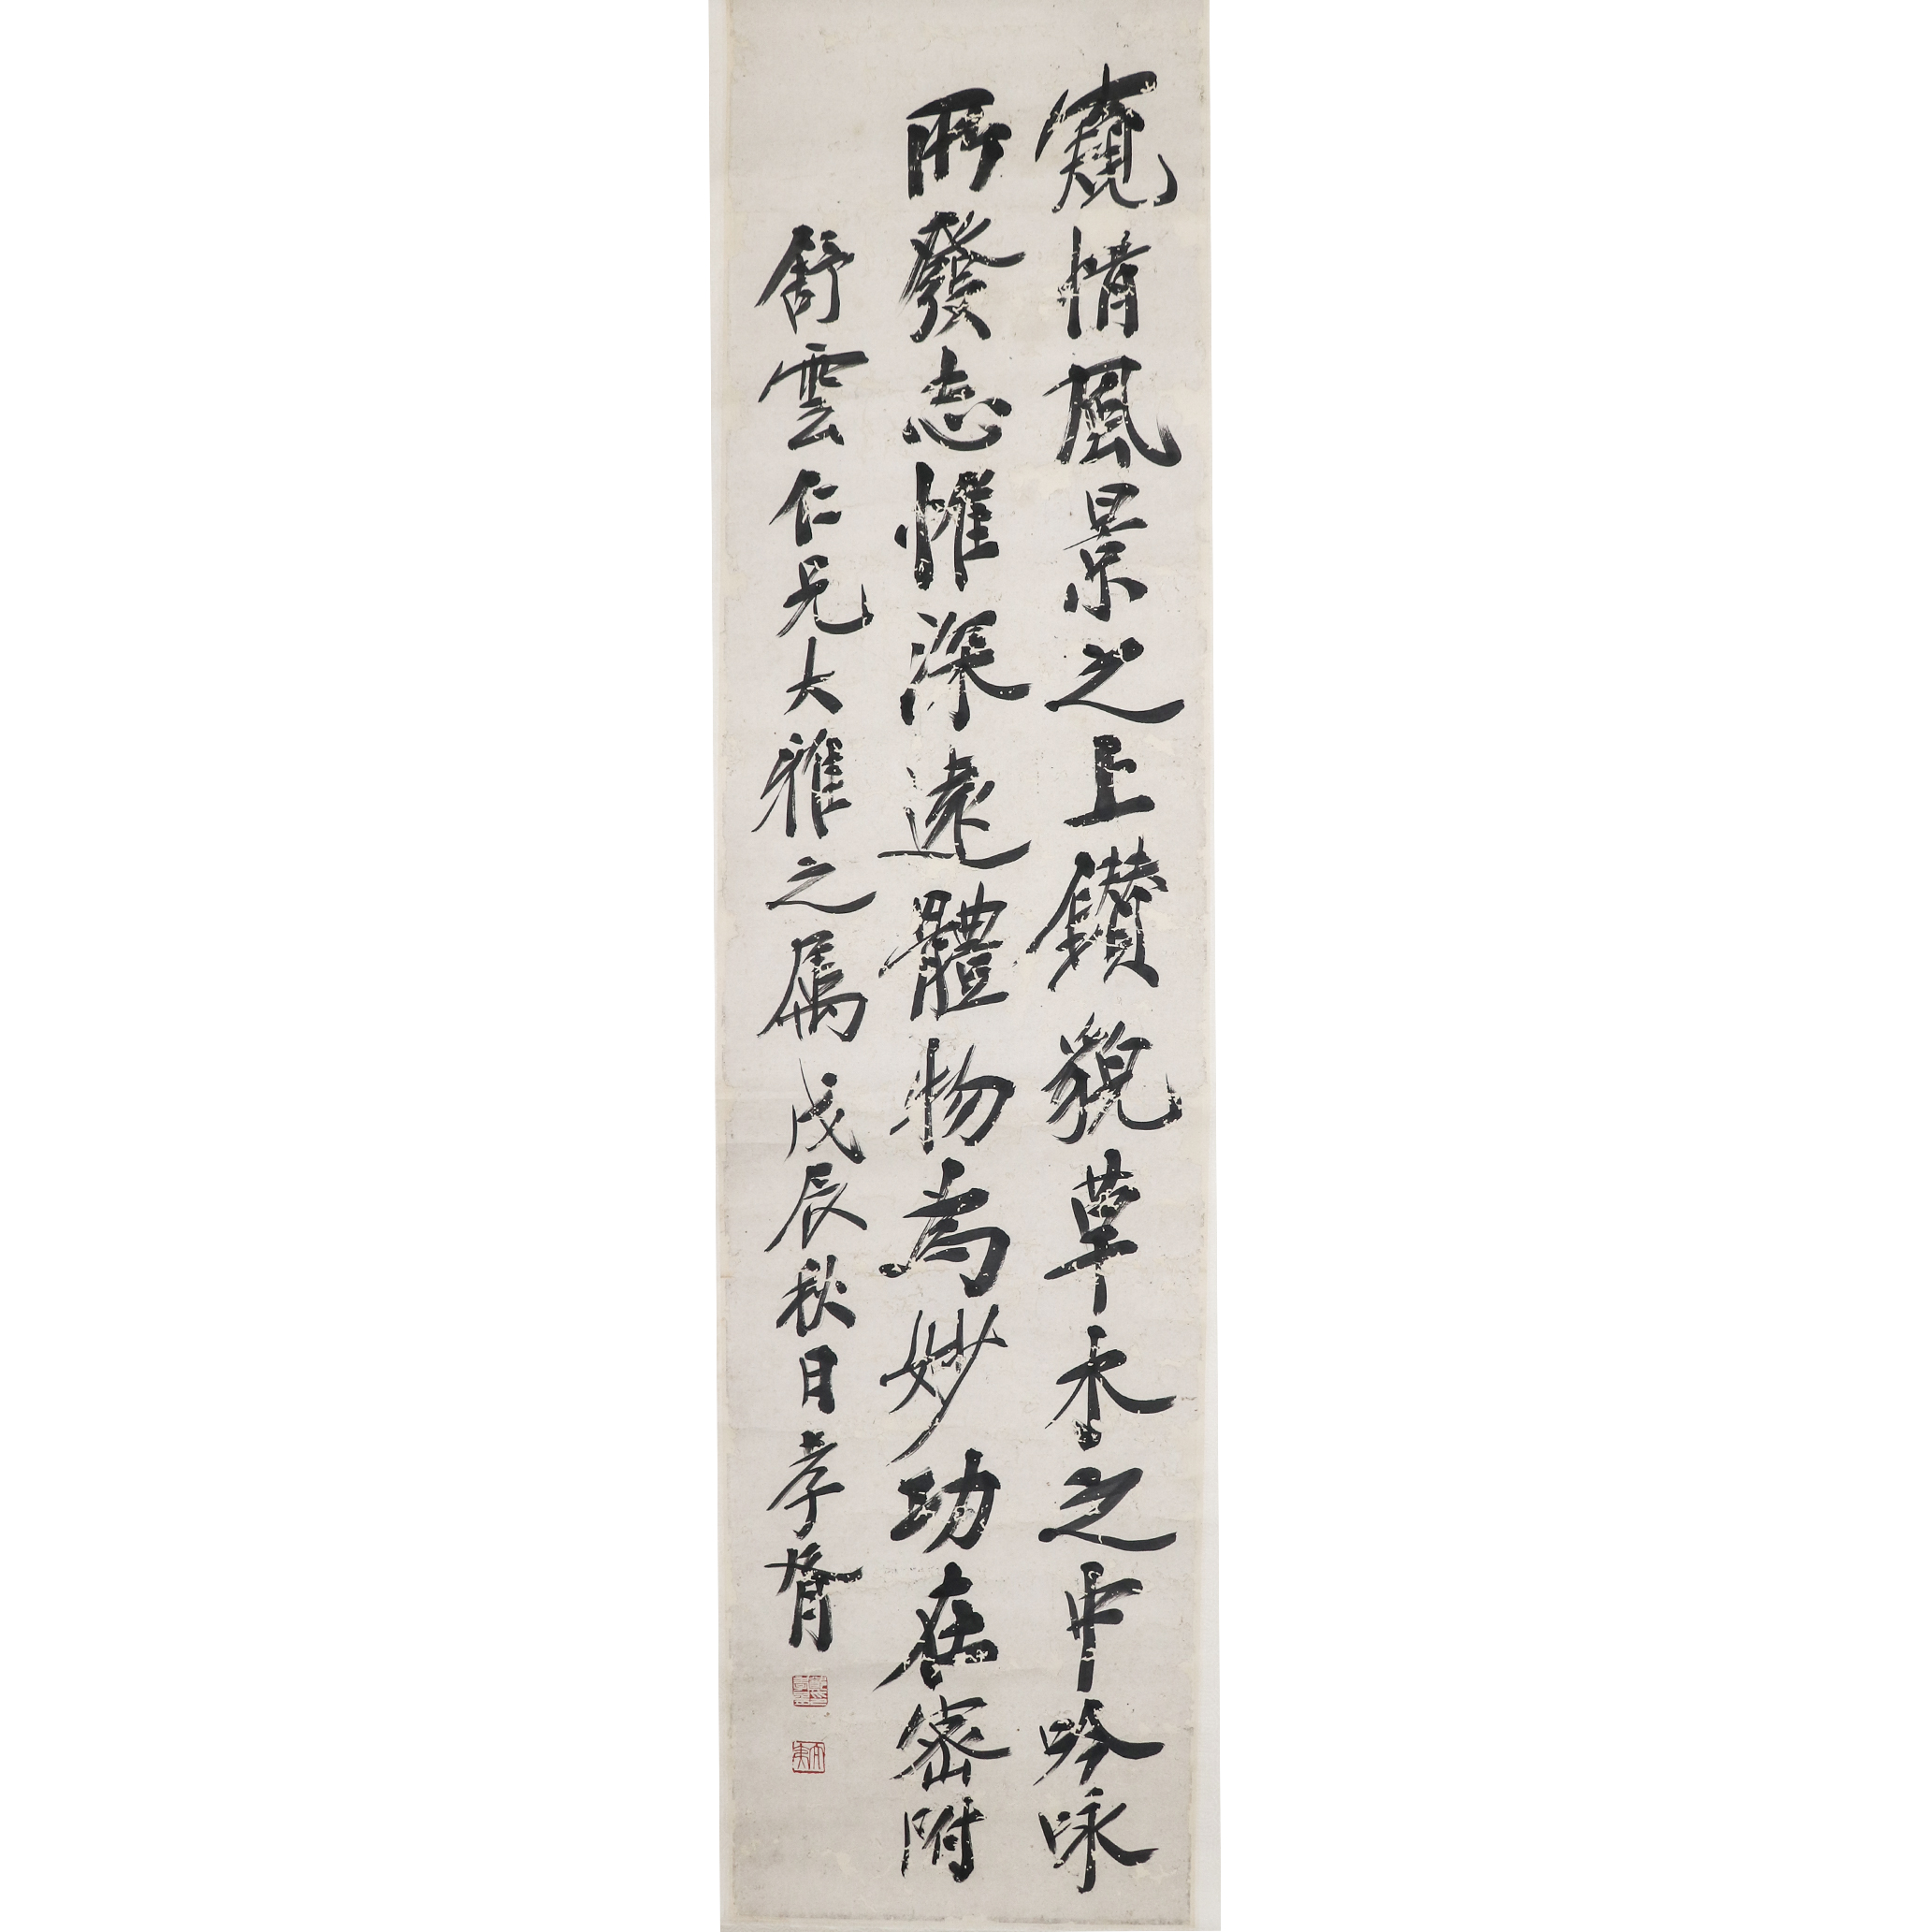 窺情風景之上鑽貌草木之中吟咏
所發志惟深遠體物為妙功在密附
舒雲仁兄大雅之属 戊辰秋日孝胥